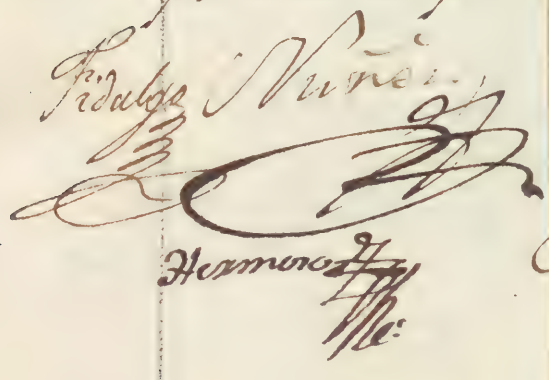 Fidalgo Nuñez
Hermoso